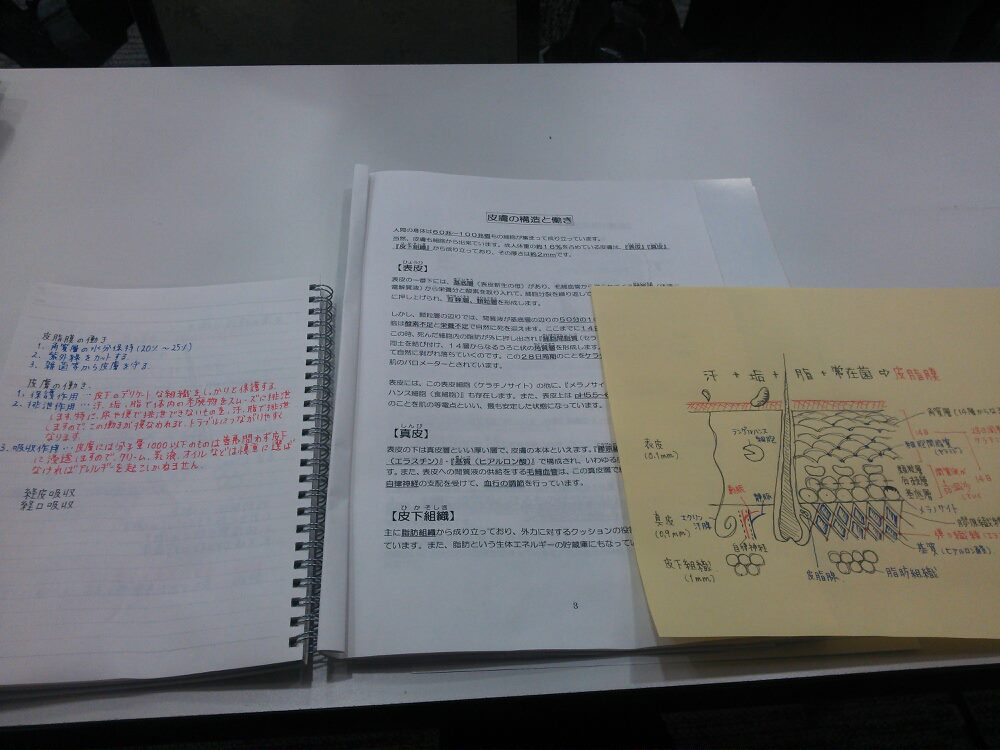 皮脂膜の働き
1. 角質層の水分保持(20%～25%)
2. 紫外線をカットする
3. 雑菌等から皮膚を守る
皮膚の働き
1. 保護作用…皮下のデリケートな組織をしっかりと保護する
2. 排泄作用…汗、垢、脂で体内の老廃物をスムーズに排泄
します。特に、尿や便で排泄できないものを、汗、脂で排泄
しますので、この働きが損なわれると、トラブルにつながりやすく
なります
3. 吸収作用…皮膚には分子量1000以下のものは善悪問わず皮下
に浸透しますので、クリーム、乳液、オイルなどは慎重に選ば
なければアレルギーを起こしかねません。
経皮吸収
経口吸収
皮膚の構造と働き
人間の身体は60兆～100兆個もの細胞が集まって成り立っています。
当然、皮膚も細胞から出来ています。成人体重の約16%を占めている皮膚は、『表皮』『真皮』
『皮下組織』から成り立っており、その厚さは約2mmです。
ひょうひ
【表皮】
表皮の一番下には、基底層(表皮新生の母)があり、毛細血管か
電解質液)から栄養分と酸素を取り入れて、細胞分裂を繰り返して
に押し上げられ、有棘層、顆粒層を形成します。
しかし、顆粒層の辺りでは、間質液が基底層の辺りの50分の1
胞は酸素不足と栄養不足で自然に死を迎えます。ここまでに14日
この時、死んだ細胞内の脂肪分が外に押し出されて細胞間脂質(セラ
同士を結び付け、14層からなるうろこ状の角質層を形成します。
て自然に剥がれ落ちていくのです。この28日周期のことをケラ
肌のバロメーターとされています。
表皮には、この表皮細胞(ケラチノサイト)の他に、『メラノサイ
ハンス細胞(食細胞)』も存在します。また、表皮上は pH5.5～6
のことを肌の等電点といい、最も安定した状態になっています。
しんぴ
【真皮】
表皮の下は真皮層といい厚い層で、皮膚の本体といえます。『膠原
(エラスチン)』・『基質(ヒアルロン酸)』で構成され、いわゆる
す。また、表皮への間質液の供給をする毛細血管は、この真皮層で
自律神経の支配を受けて、血行の調節を行っています。
ひかそしき
【皮下組織】
主に脂肪組織から成り立っており、外力に対するクッションの役
ています。また、脂肪という生体エネルギーの貯蔵庫にもなってい
3
汗 + 垢 + 脂 + 常在菌 ⇨ 皮脂膜
角質層(14層から
ランゲルハンス
細胞
表皮
(0.1mm)
14日
細胞間脂質
(セラミド)
顆粒層
有棘層
基底層
間質液が
14日
メラノサイト
動脈
静脈
真皮
(0.9mm)
エクリン
汗腺
自律神経
基質(ヒアルロン酸)
皮下組織
(1mm)
皮脂腺
脂肪組織